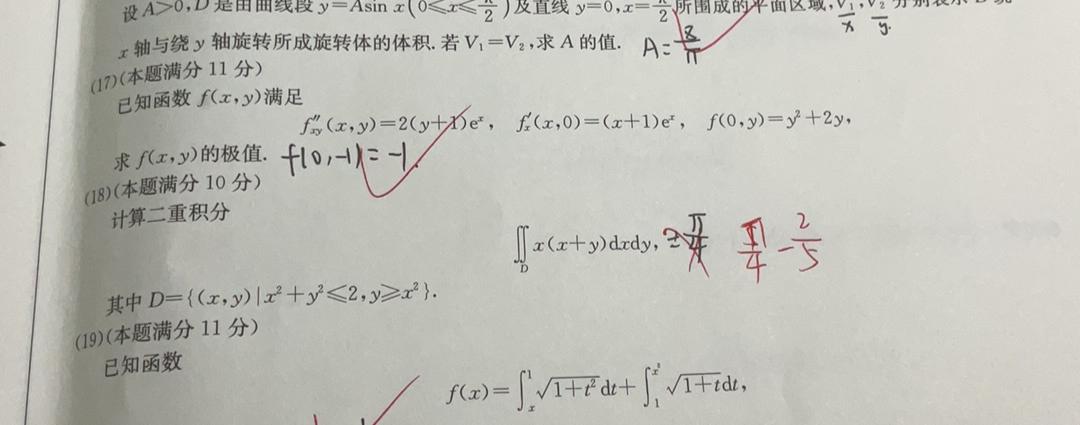 设 A>0,D 是由曲线段 y=Asin x(0≤x≤π/2)及直线 y=0,x=π/2所围成的平面区域,V₁,V₂
x 轴与绕 y 轴旋转所成旋转体的体积.若 V₁=V₂,求 A 的值. A=8/π x y
(17)(本题满分 11 分)
已知函数 f(x,y)满足
f″xy(x,y)=2(y+1)eˣ, f′x(x,0)=(x+1)eˣ, f(0,y)=y²+2y,
求 f(x,y)的极值. f(0,-1)=-1
(18)(本题满分 10 分)
计算二重积分
∬D x(x+y)dxdy, =π/4 π/4-2/5
其中 D={(x,y)|x²+y²≤2,y≥x²}.
(19)(本题满分 11 分)
已知函数
f(x)=∫ₓ¹√(1+t²)dt+∫₁^(x²)√(1+t)dt,